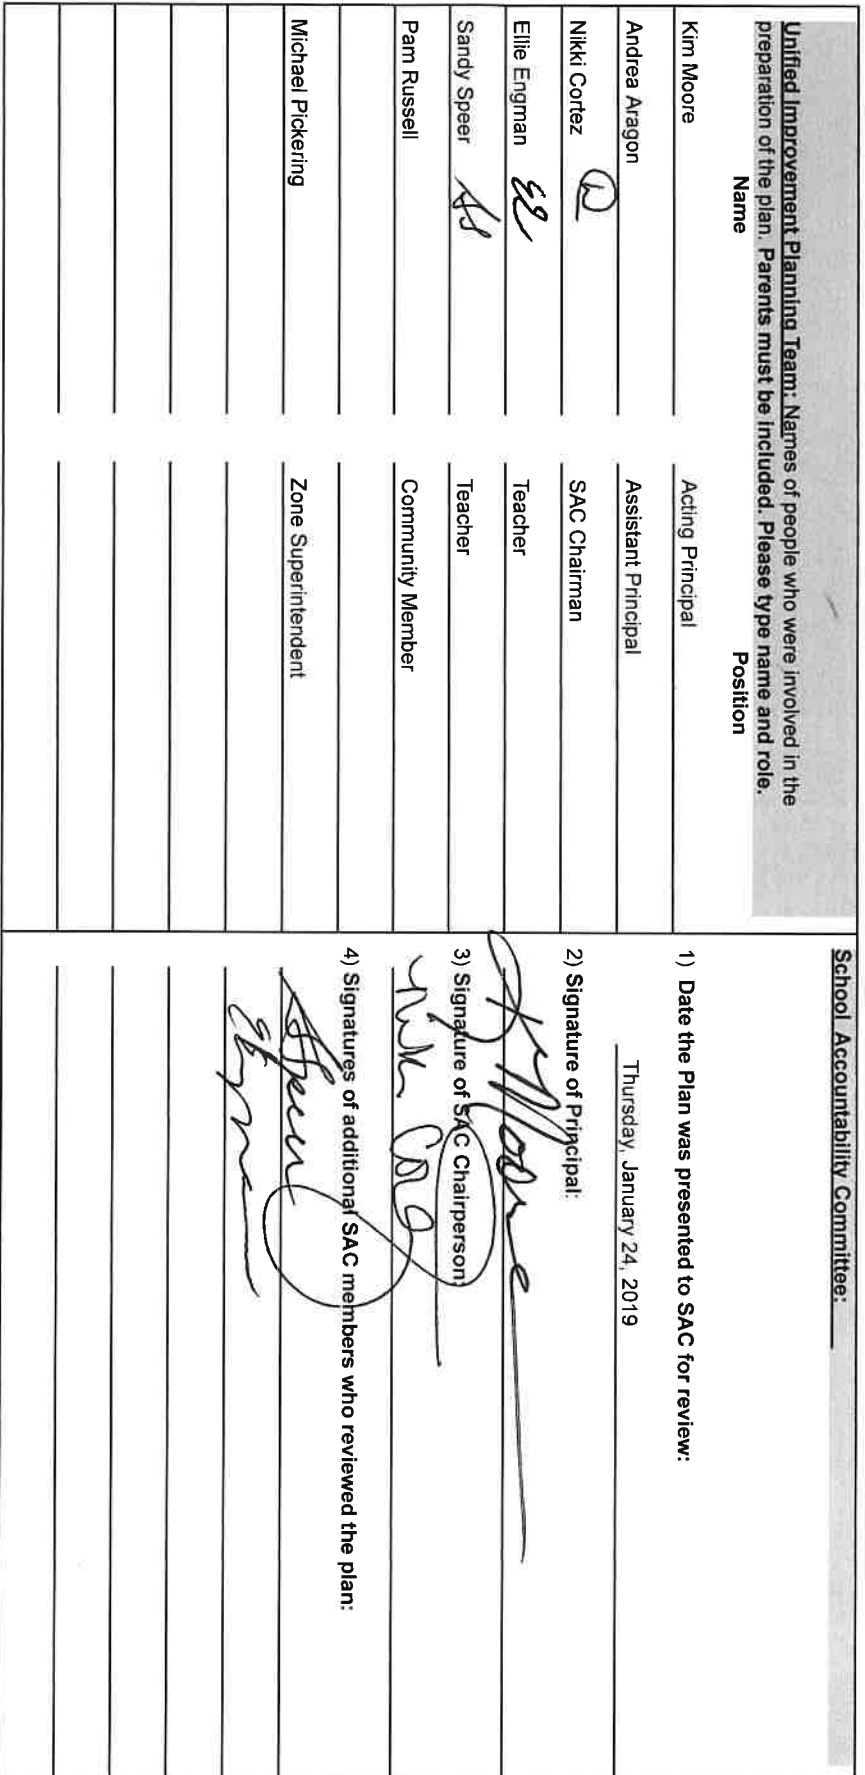 Unified Improvement Planning Team: Names of people who were involved in the
preparation of the plan. Parents must be included. Please type name and role.
Name Position
Kim Moore Acting Principal
Andrea Aragon Assistant Principal
Nikki Cortez SAC Chairman
Ellie Engman EE Teacher
Sandy Speer SS Teacher
Pam Russell Community Member
Michael Pickering Zone Superintendent
School Accountability Committee:
1) Date the Plan was presented to SAC for review:
Thursday, January 24, 2019
2) Signature of Principal:
K Moore
3) Signature of SAC Chairperson:
4) Signatures of additional SAC members who reviewed the plan:
SSpeer